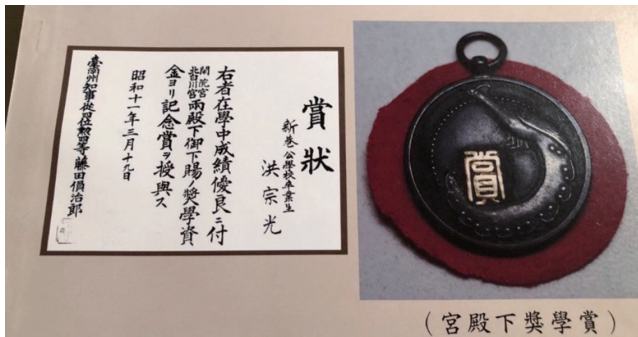 賞狀
新巷公學校卒業生
洪宗光
右者在學中成績優良ニ付
閑院宮北白川宮兩殿下御下賜ノ奬學資
金ヨリ記念賞ヲ授與ス
昭和十一年三月十九日
臺南州知事從四位勲四等藤田傊治郎
賞
(宮殿下獎學賞)